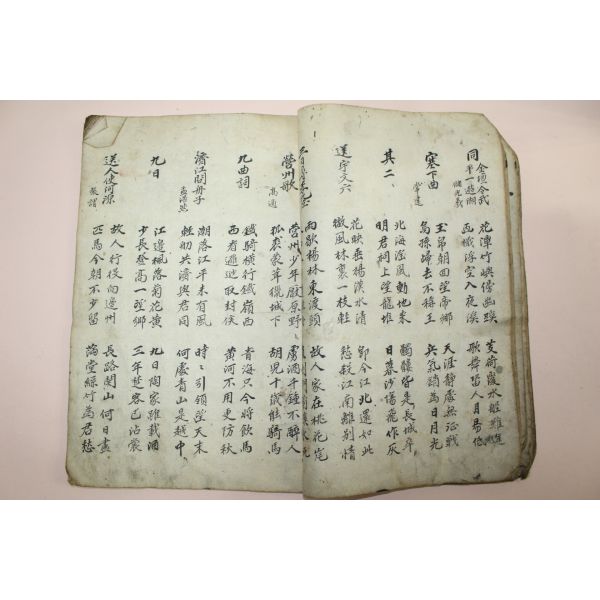 同金壇令武平一遊湖 儲光羲
花潭竹嶼傍幽蹊 芰荷覆水船難進
画檝浮空入夜溪 歌舞留人月易低
塞下曲 常建
玉帛朝回望帝鄉 天涯靜處無征戰
烏孫歸去不稱王 兵氣銷為日月光
其二
北海陰風動地來 髑髏皆是長城卒
明君祠上望龍堆 日暮沙場飛作灰
送宇文六
花映垂楊漢水清 即今江北還如此
微風林裏一枝輕 愁殺江南離別情
雨歇楊林東渡頭 故人家在桃花岸
營州歌 高適
營州少年厭原野 虜酒千鍾不醉人
狐裘蒙茸獵城下 胡兒十歲能騎馬
九曲詞
鐵騎橫行鐵嶺西 青海只今將飲馬
西看邏逤取封侯 黃河不用更防秋
濟江問舟子 孟浩然
潮落江平未有風 時時引領望天末
輕舠共濟與君同 何處青山是越中
九日
江邊楓落菊花黃 九日陶家雖載酒
少長登高一望鄉 三年楚客已沾裳
送人使河源 張謂
故人行役向邊州 長路關山何日盡
匹馬今朝不少留 滿堂絲竹為君愁